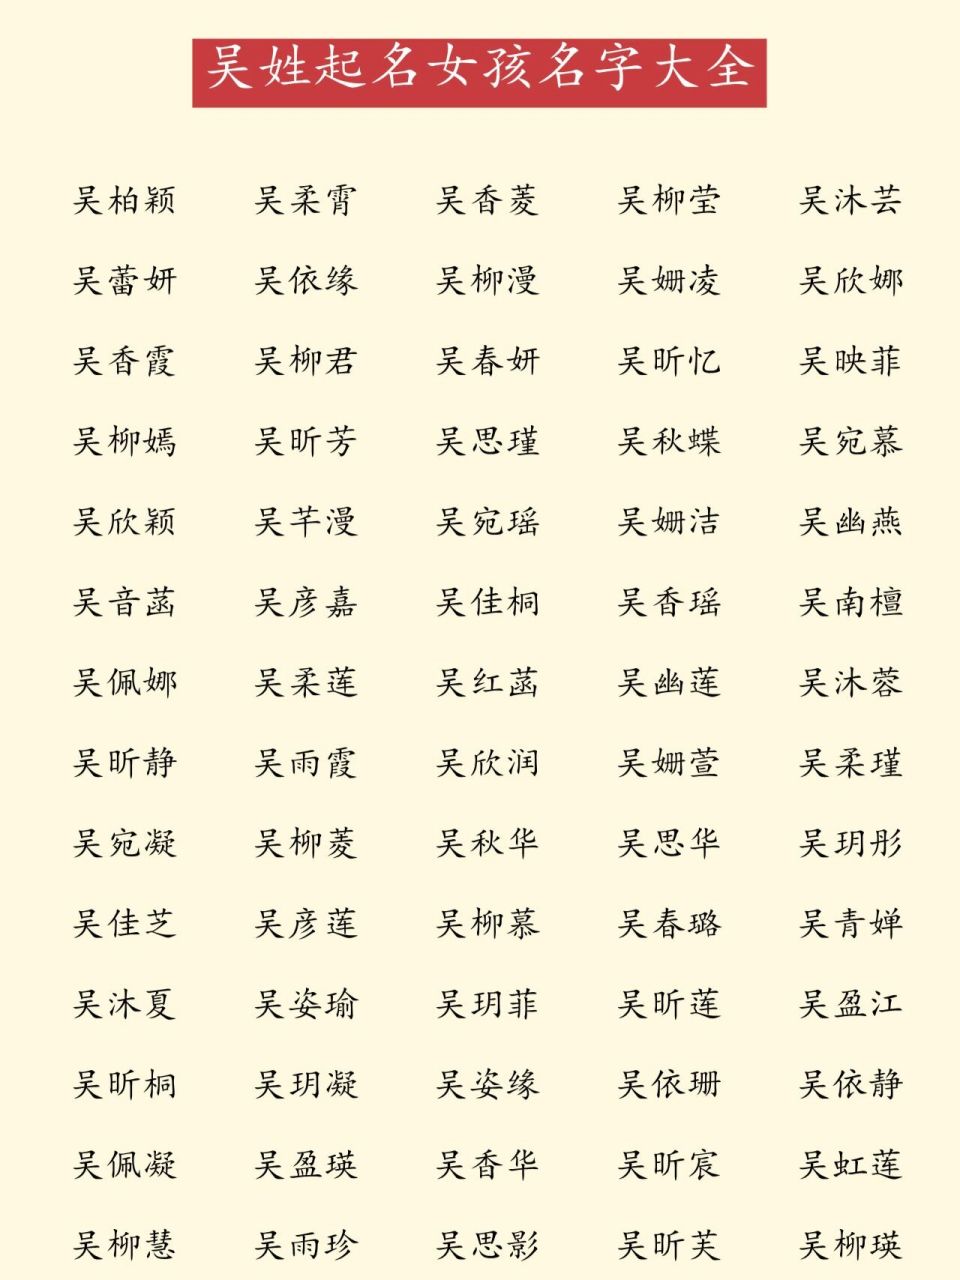 吴姓起名女孩名字大全
吴柏颖 吴柔霄 吴香菱 吴柳莹 吴沐芸
吴蕾妍 吴依缘 吴柳漫 吴姗凌 吴欣娜
吴香霞 吴柳君 吴春妍 吴昕忆 吴映菲
吴柳嫣 吴昕芳 吴思瑾 吴秋蝶 吴宛慕
吴欣颖 吴芊漫 吴宛瑶 吴姗洁 吴幽燕
吴音菡 吴彦嘉 吴佳桐 吴香瑶 吴南檀
吴佩娜 吴柔莲 吴红菡 吴幽莲 吴沐蓉
吴昕静 吴雨霞 吴欣润 吴姗萱 吴柔瑾
吴宛凝 吴柳菱 吴秋华 吴思华 吴玥彤
吴佳芝 吴彦莲 吴柳慕 吴春璐 吴青婵
吴沐夏 吴姿瑜 吴玥菲 吴昕莲 吴盈江
吴昕桐 吴玥凝 吴姿缘 吴依珊 吴依静
吴佩凝 吴盈瑛 吴香华 吴昕宸 吴虹莲
吴柳慧 吴雨珍 吴思影 吴昕芙 吴柳瑛